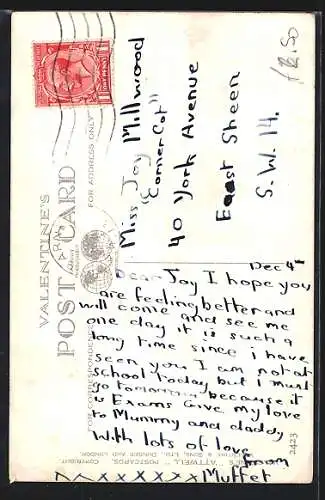 VALENTINE'S
POST CARD
FOR ADDRESS ONLY
FOR CORRESPONDENCE
ONE PENNY
£2.50
Miss Joy Millwood
"Corner Cot"
40 York Avenue
East Sheen
S.W. 14.
Dec 4th
Dear Joy I hope you
are feeling better and
will come and see me
one day it is such a
long time since i have
seen you I am not at
school today but I must
go tomorrow because it
is Exams Give my love
to Mummy and daddy
With lots of love
from
Muffet
x x x x x x x x x
"ATTWELL" POSTCARDS, COPYRIGHT
& SONS, LTD., DUNDEE AND LONDON.
2423